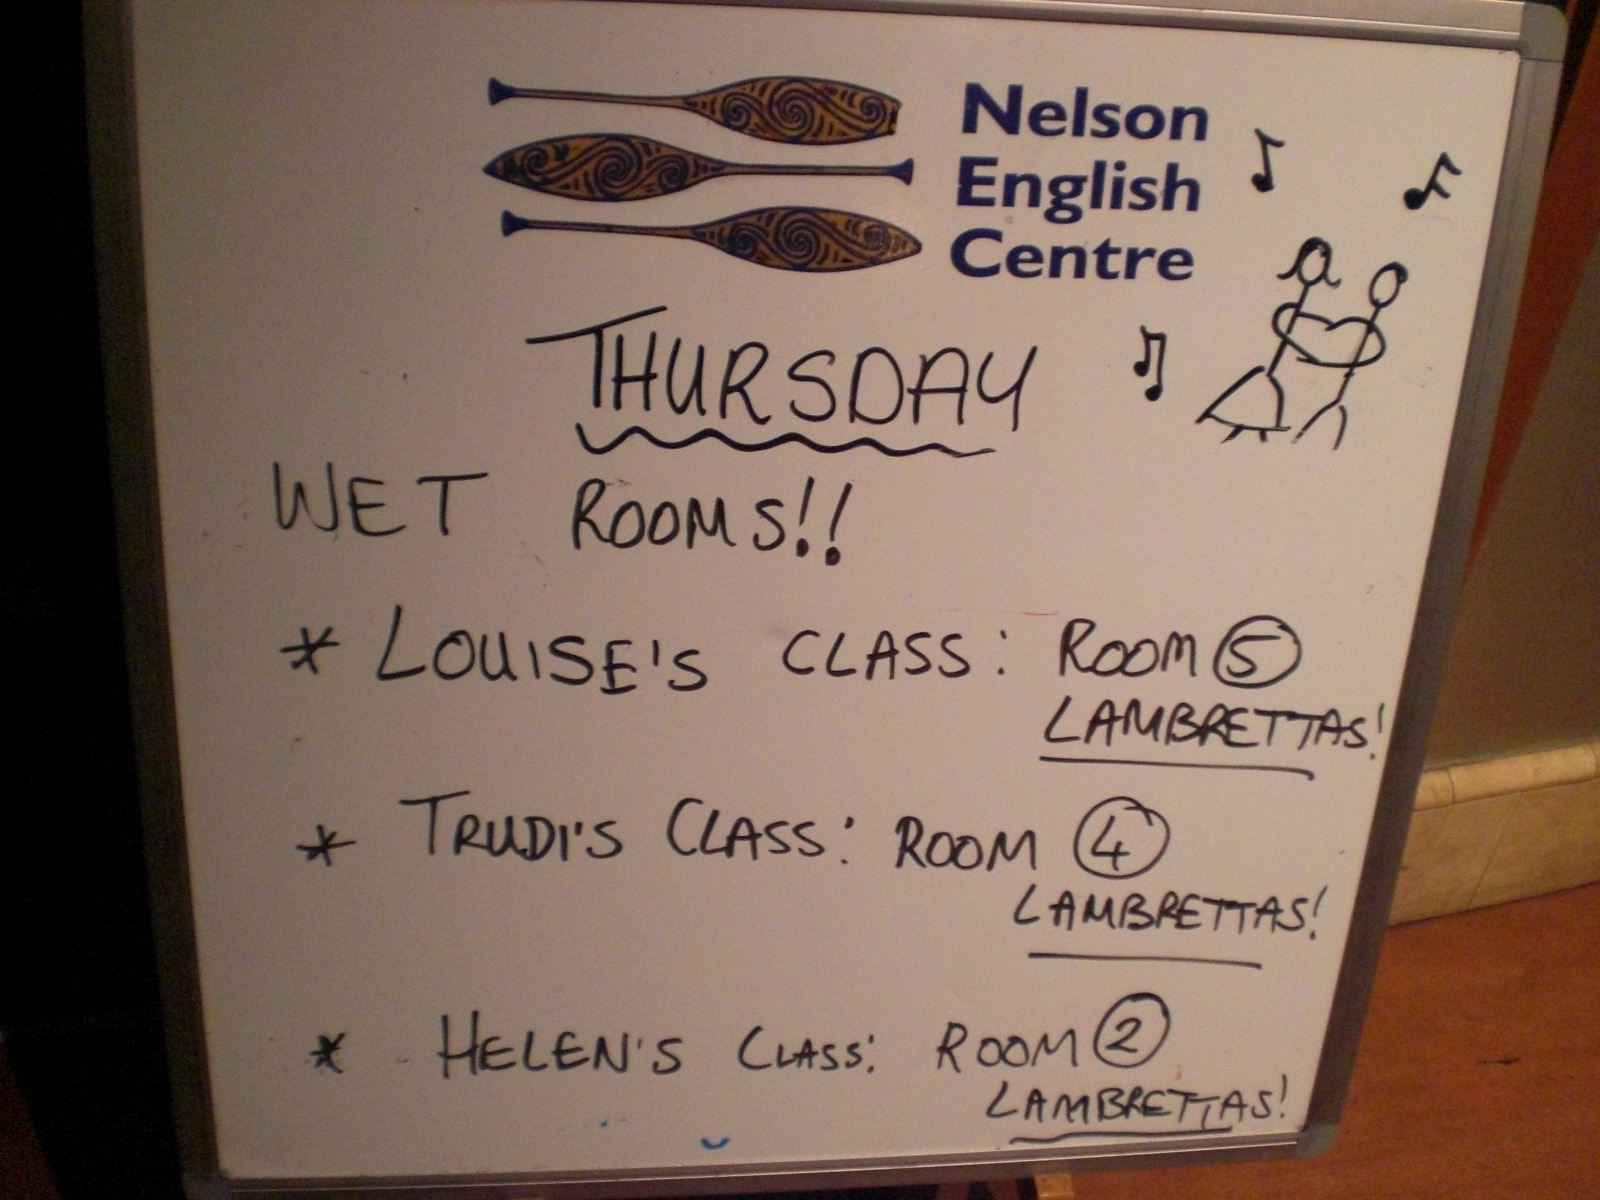 Nelson
English
Centre
THURSDAY
WET ROOMS!!
* LOUISE'S CLASS: ROOM 5
LAMBRETTAS!
* TRUDI'S CLASS: ROOM 4
LAMBRETTAS!
* HELEN'S CLASS: ROOM 2
LAMBRETTAS!